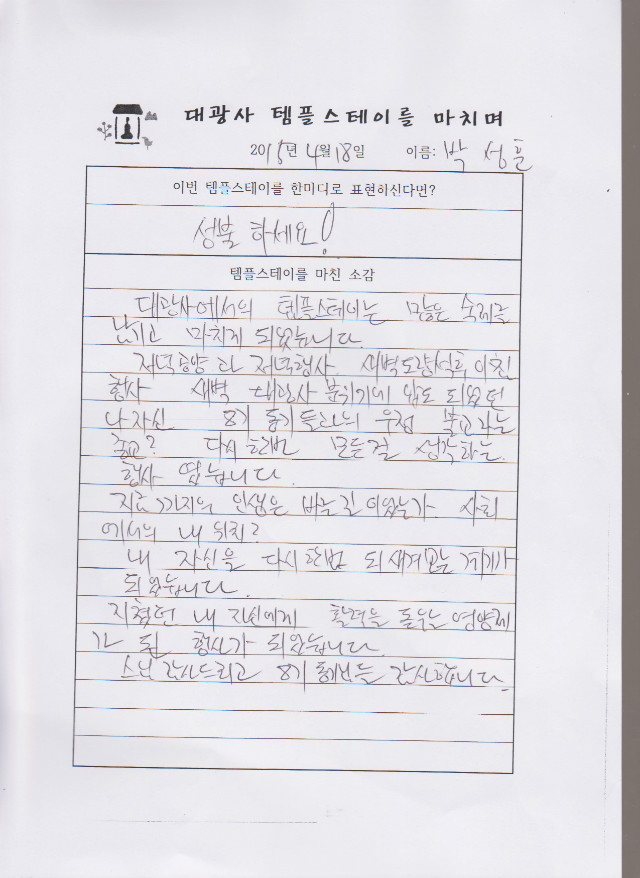 대광사 템플스테이를 마치며
2015년 4월 18일 이름: 박 성훈
이번 템플스테이를 한마디로 표현하신다면?
성불 하세요!
템플스테이를 마친 소감
대광사에서의 템플스테이는 많은 숙제를
남기고 마치게 되었습니다.
저녁공양과 저녁행사. 새벽도량석후 아침
행사 새벽 대광사 분위기에 압도 되었던
나자신 8기 동기들과의 우정 불교라는
종교? 다시한번 모든걸 생각하는
행사 였습니다.
지금까지의 인생은 바른길이었는가. 사회
에서의 내 위치?
내 자신을 다시한번 되새겨보는 계기가
되었습니다.
지쳤던 내 자신에게 활력을 돋우는 영양제
가 된 행사가 되었습니다.
스님 감사드리고 8기 동기분들 감사합니다.